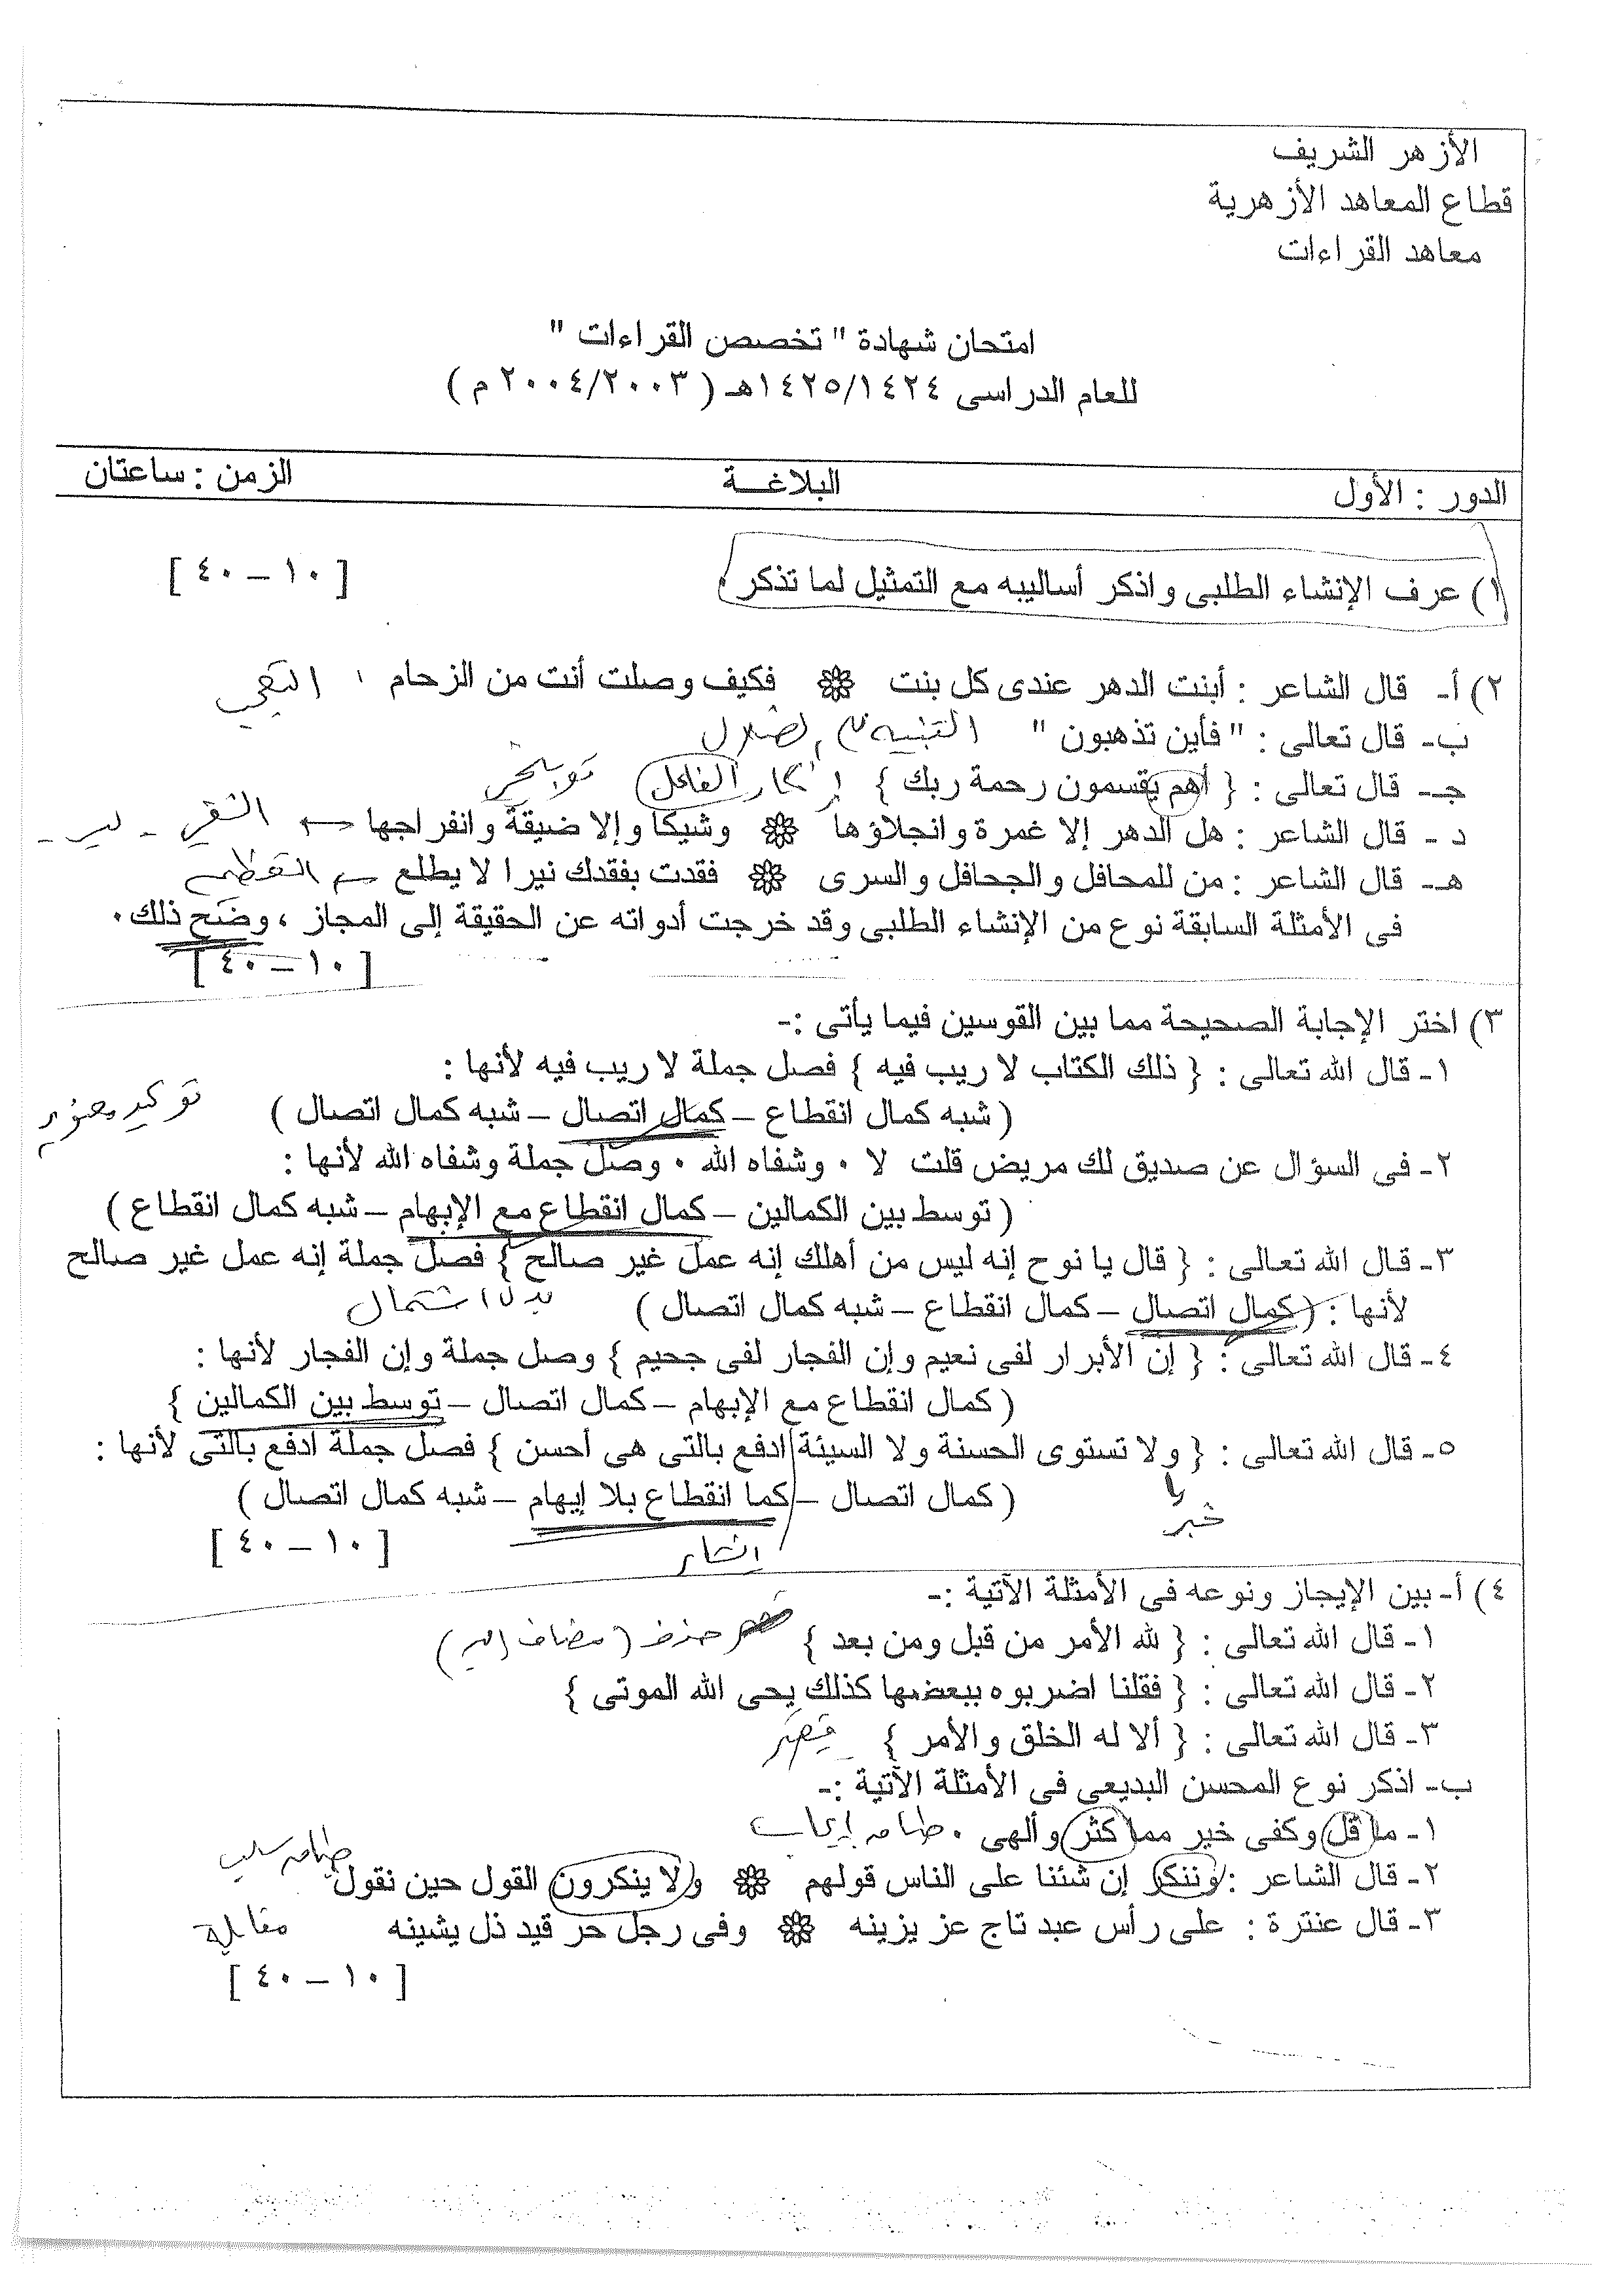 الأزهر الشريف
قطاع المعاهد الأزهرية
معاهد القراءات
امتحان شهادة " تخصص القراءات "
للعام الدراسى ١٤٢٥/١٤٢٤هـ ( ٢٠٠٤/٢٠٠٣ م )
الدور : الأول البلاغـــة الزمن : ساعتان
١) عرف الإنشاء الطلبى واذكر أساليبه مع التمثيل لما تذكر . [ ١٠ – ٤٠ ]
٢) أ- قال الشاعر : أبنت الدهر عندى كل بنت فكيف وصلت أنت من الزحام التعجب
ب- قال تعالى : " فأين تذهبون " التنبيه ضلال
جـ- قال تعالى : { أهم يقسمون رحمة ربك } إنكار الفاعل توبيخى
د - قال الشاعر : هل الدهر إلا غمرة وانجلاؤها وشيكا وإلا ضيقة وانفراجها النفى - ليس -
هـ- قال الشاعر : من للمحافل والجحافل والسرى فقدت بفقدك نيرا لا يطلع التعظيم
فى الأمثلة السابقة نوع من الإنشاء الطلبى وقد خرجت أدواته عن الحقيقة إلى المجاز ، وضح ذلك .
[ ١٠ – ٤٠ ]
٣) اختر الإجابة الصحيحة مما بين القوسين فيما يأتى :-
١- قال الله تعالى : { ذلك الكتاب لا ريب فيه } فصل جملة لا ريب فيه لأنها :
( شبه كمال انقطاع – كمال اتصال – شبه كمال اتصال ) توكيد معنوى
٢- فى السؤال عن صديق لك مريض قلت لا . وشفاه الله . وصل جملة وشفاه الله لأنها :
( توسط بين الكمالين – كمال انقطاع مع الإبهام – شبه كمال انقطاع )
٣- قال الله تعالى : { قال يا نوح إنه ليس من أهلك إنه عمل غير صالح } فصل جملة إنه عمل غير صالح
لأنها : ( كمال اتصال – كمال انقطاع – شبه كمال اتصال ) بدل اشتمال
٤- قال الله تعالى : { إن الأبرار لفى نعيم وإن الفجار لفى جحيم } وصل جملة وإن الفجار لأنها :
( كمال انقطاع مع الإبهام – كمال اتصال – توسط بين الكمالين }
٥- قال الله تعالى : { ولا تستوى الحسنة ولا السيئة ادفع بالتى هى أحسن } فصل جملة ادفع بالتى لأنها :
( كمال اتصال – كما انقطاع بلا إيهام – شبه كمال اتصال )
خبر
إنشاء [ ١٠ – ٤٠ ]
٤) أ- بين الإيجاز ونوعه فى الأمثلة الآتية :-
١- قال الله تعالى : { لله الأمر من قبل ومن بعد } حذف ( مضاف إليه )
٢- قال الله تعالى : { فقلنا اضربوه ببعضها كذلك يحى الله الموتى }
٣- قال الله تعالى : { ألا له الخلق والأمر } قصر
ب- اذكر نوع المحسن البديعى فى الأمثلة الآتية :-
١- ما قل وكفى خير مما كثر وألهى . طباق إيجاب
٢- قال الشاعر : وننكر إن شئنا على الناس قولهم ولا ينكرون القول حين نقول طباق سلب
٣- قال عنترة : على رأس عبد تاج عز يزينه وفى رجل حر قيد ذل يشينه مقابلة
[ ١٠ – ٤٠ ]